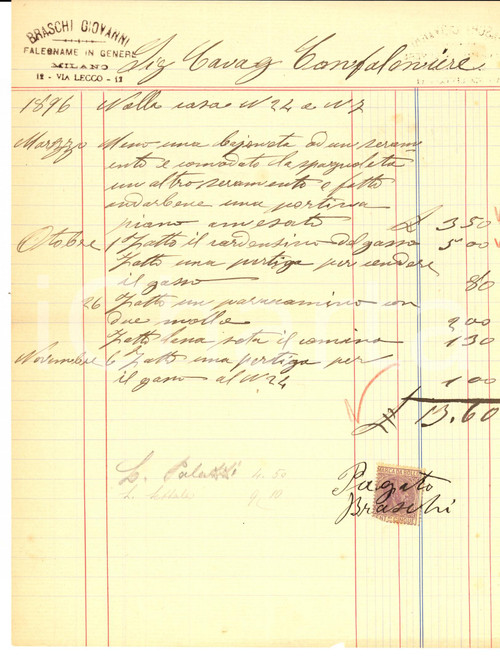 BRASCHI GIOVANNI
FALEGNAME IN GENERE
MILANO
12 - VIA LECCO - 12
Sig Cavag Confalonieri
1896 Nella casa N 24 e N 7
Marzzo Meso una bajoneta ad un seram
ento e comodato la spagnoleta
un altro seramento e fatto
andarbene una portina
piano amesato £ 3 50
Otobre 1 Fatto il cardensino del gasso 5 00
Fatto una pertiga per cendere
il gasso 80
26 Fatto un paracamino con
due molle 2 00
Fatto lana sota il camino 1 30
Novembre 6 Fatto una pertiga per
il gasso al N 24 1 00
£ 13.60
4.50
9.10
Pagato
Braschi